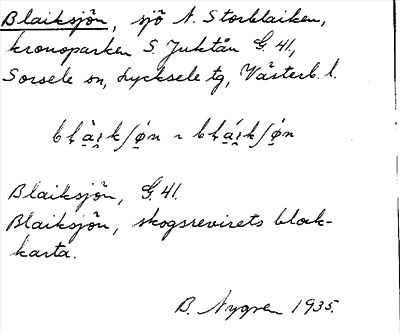 Blaiksjön, sjö N. Storblaiken,
kronoparken S. Juktån G. 41,
Sorsele sn, Lycksele tg, Västerb. l.
Blaiksjön, G. 41.
Blaiksjön, skogsrevirets block-
karta.
B. Nygren 1935.